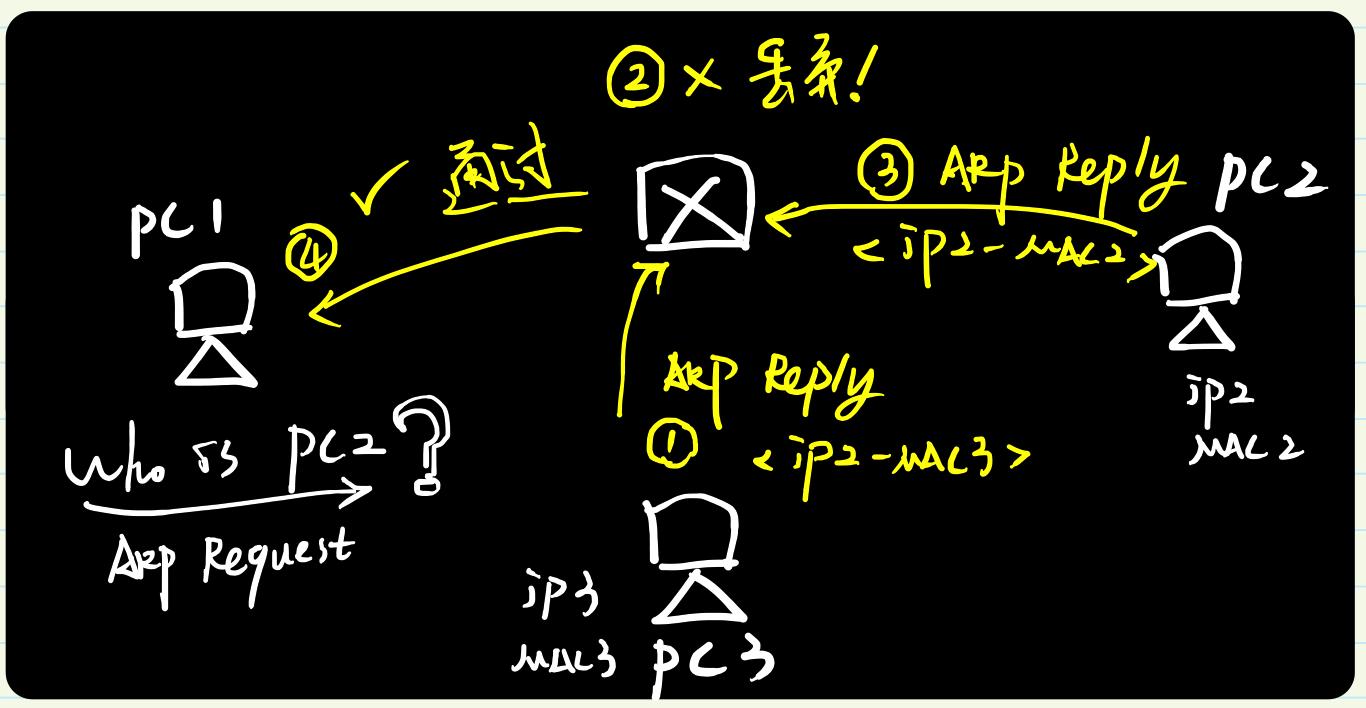 ② × 丢弃!
✓ 通过
③ ARP Reply
PC2
<iP2-MAC2>
PC1
④
ARP Reply
① <iP2-MAC3>
iP2
MAC2
Who is PC2?
ARP Request
iP3
MAC3
PC3